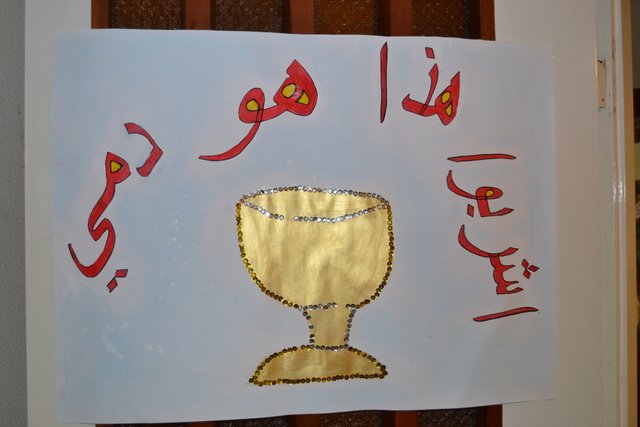 اشربوا هذا هو دمي